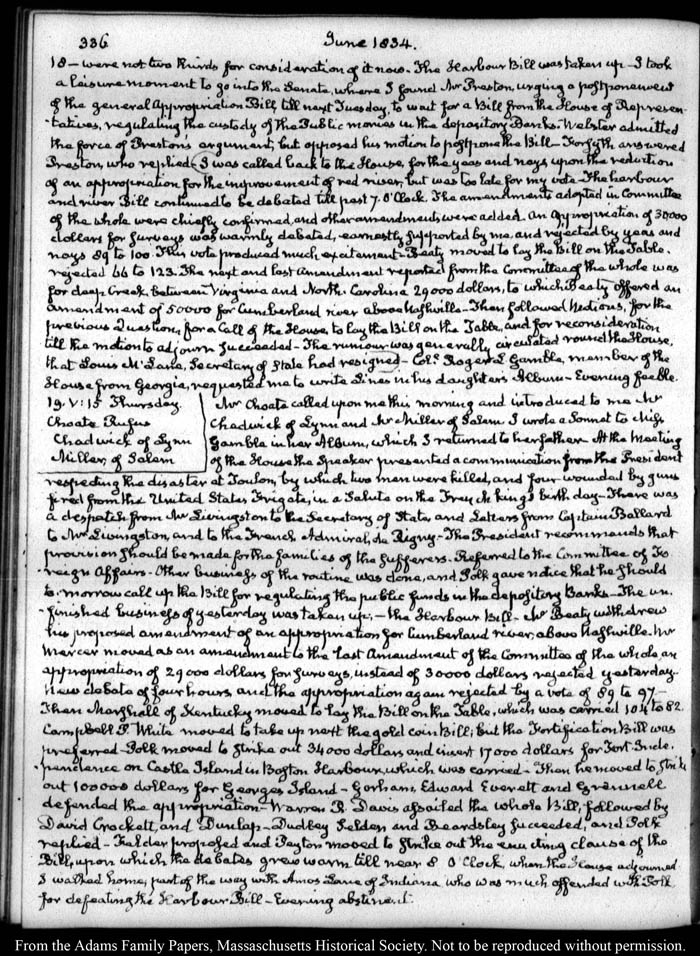 336
June 1834.
18 — were not two thirds for consideration of it now. The Harbour Bill was taken up — I took
a leisure moment to go into the Senate, where I found Mr Preston, urging a postponement
of the general Appropriation Bill, till next Tuesday, to wait for a Bill from the House of Represen-
-tatives, regulating the custody of the Public monies in the depository Banks. Webster admitted
the force of Preston's argument, but opposed his motion to postpone the Bill — Forsyth answered
Preston, who replied. I was called back to the House, for the yeas and nays, upon the reduction
of an appropriation for the improvement of red river, but was too late for my vote — The harbour
and river Bill continued to be debated till past 7. O'Clock. The amendments adopted in Committee
of the whole were chiefly confirmed, and other amendments, were added. An appropriation of 30000
dollars for Surveys was warmly debated, earnestly supported by me, and rejected by yeas and
nays 89 to 100. This vote produced much excitement — Beaty moved to lay the Bill on the Table.
rejected 66 to 123. The next and last amendment reported from the Committee of the whole was
for deep Creek, between Virginia and North-Carolina 29000 dollars, to which Beaty offered an
amendment of 50000 for Cumberland river above Nashville — Then followed Motions, for the
previous Question, for a Call of the House, to lay the Bill on the Table, and for reconsideration
till the motion to adjourn succeeded — The rumour was generally circulated round the House,
that Louis Mc'Lane, Secretary of State had resigned — Coll. Roger L Gamble, member of the
House from Georgia, requested me to write Lines in his daughter's Album — Evening feeble.
19. V: 15 Thursday.
Choate Rufus
Chadwick of Lynn
Miller, of Salem
Mr Choate called upon me this morning and introduced to me Mr
Chadwick of Lynn and Mr Miller of Salem I wrote a Sonnet to Miss
Gamble in her Album, which I returned to her father. At the meeting
of the House the Speaker presented a communication from the President
respecting the disaster at Toulon, by which two men were killed, and four wounded by guns
fired from the United States Frigate, in a Salute on the French king's birth day — There was
a despatch from Mr Livingston to the Secretary of State, and Letters from Captain Ballard
to Mr Livingston, and to the French Admiral, de Rigny — The President recommends that
provision should be made for the families of the Sufferers. Referred to the Committee of Fo-
-reign Affairs. Other business of the routine was done, and Polk gave notice that he should
to-morrow call up the Bill for regulating the public funds in the depository Banks — The un-
-finished business of yesterday was taken up; — the Harbour Bill — Mr Beaty withdrew
his proposed amendment of an appropriation for Cumberland river, above Nashville. Mr
Mercer moved as an amendment to the last Amendment of the Committee of the whole, an
appropriation of 29000 dollars for Surveys, instead of 30000 dollars rejected yesterday.
New debate of four hours, and the appropriation again rejected by a vote of 89 to 97 —
Then Marshall of Kentucky moved to lay the Bill on the Table, which was carried 104 to 82.
Campbell P. White moved to take up next the gold coin Bill; but the Fortification Bill was
preferred — Polk moved to strike out 34000 dollars and insert 17000 dollars for Fort Inde-
-pendence on Castle Island in Boston Harbour, which was carried — Then he moved to strike
out 100000 dollars for Georges Island — Gorham, Edward Everett and Grennell
defended the appropriation — Warren R. Davis assailed the whole Bill, followed by
David Crockett, and Dunlap — Dudley Selden and Beardsley succeeded, and Polk
replied — Felder proposed and Peyton moved to strike out the enacting clause of the
Bill, upon which the debates grew warm till near 8 O'Clock, when the House adjourned
I walked home, part of the way with Amos Lane of Indiana who was much offended with Polk
for defeating the Harbour Bill — Evening abstinent.
From the Adams Family Papers, Massachusetts Historical Society. Not to be reproduced without permission.